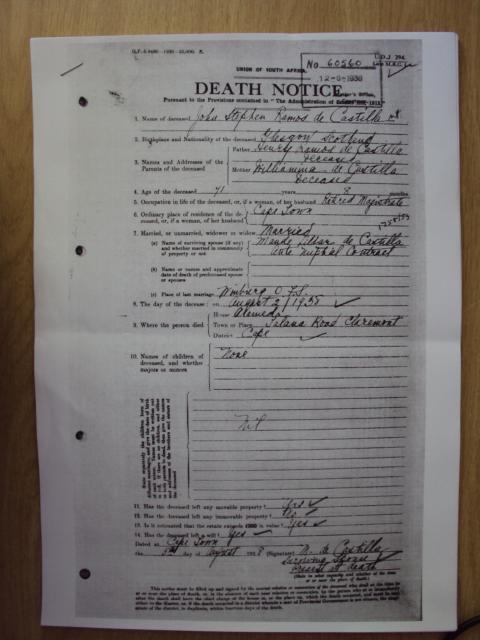 UNION OF SOUTH AFRICA.
No 60560
12-8-1938
DEATH NOTICE.
Pursuant to the Provisions contained in "The Administration of Estates Act, 1913."
1. Name of deceased John Stephen Ramos de Castilla
2. Birthplace and Nationality of the deceased Glasgow Scotland
3. Names and Addresses of the Parents of the deceased
Father Henry Ramos de Castilla
Deceased
Mother Williamina de Castilla
Deceased
4. Age of the deceased 71 years 8 months
5. Occupation in life of the deceased, or, if a woman, of her husband Retired Magistrate
6. Ordinary place of residence of the deceased, or, if a woman, of her husband Cape Town
7. Married or unmarried, widower or widow Married
(a) Name of surviving spouse (if any) and whether married in community of property or not
Maude de Castilla
Ante Nuptial Contract
(b) Name or names and approximate date of death of predeceased spouse or spouses
(c) Place of last marriage Winburg O.F.S.
8. The day of the decease: on August 2/1938
9. Where the person died
House Alameda
Town or Place Salana Road Claremont
District Cape
10. Names of children of deceased, and whether majors or minors
None
Nil
11. Has the deceased left any movable property? Yes
12. Has the deceased left any immovable property? No
13. Is it estimated that the estate exceeds £300 in value? Yes
14. Has the deceased left a will? Yes
Dated at Cape Town
the 5th day of August 1938 (Signature) M. de Castilla
Surviving Spouse
Present at death
(State in what capacity, and whether at the time
or at or near the place of death).